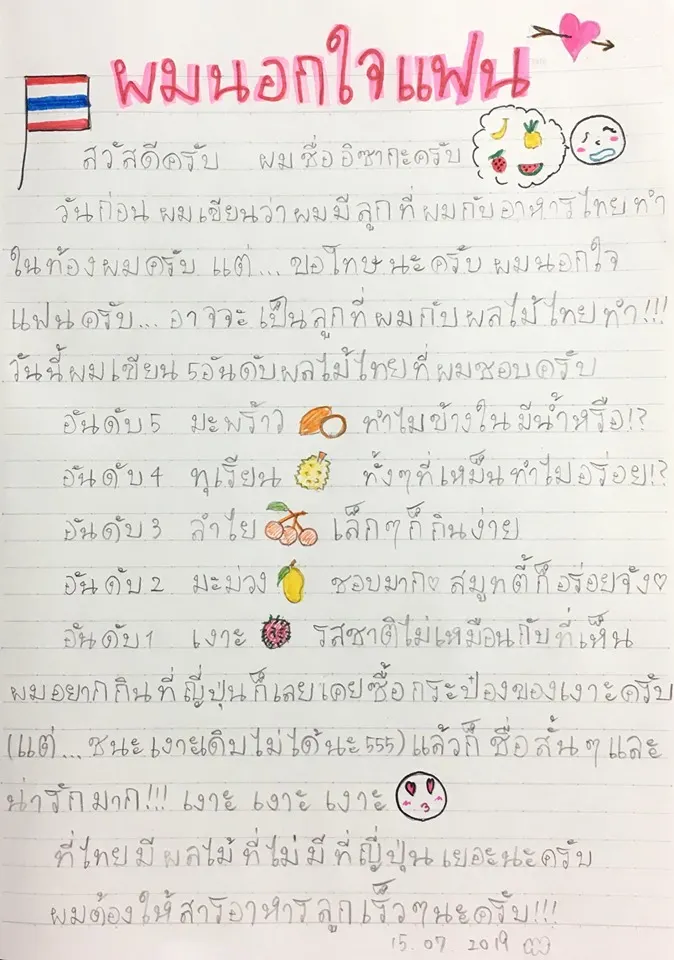 ผมนอกใจแฟน
สวัสดีครับ ผมชื่ออิซากะครับ
วันก่อน ผมเขียนว่าผมมีลูกที่ผมกับอาหารไทยทำ
ในท้องผมครับ แต่... ขอโทษนะครับ ผมนอกใจ
แฟนครับ... อาจจะเป็นลูกที่ผมกับผลไม้ไทยทำ!!!
วันนี้ผมเขียน 5อันดับผลไม้ไทยที่ผมชอบครับ
อันดับ5 มะพร้าว ทำไมข้างในมีน้ำหรือ!?
อันดับ4 ทุเรียน ทั้งๆที่เหม็นทำไมอร่อย!?
อันดับ3 ลำไย เล็กๆก็กินง่าย
อันดับ2 มะม่วง ชอบมาก♡ สมูทตี้ก็อร่อยจัง♡
อันดับ1 เงาะ รสชาติไม่เหมือนกับที่เห็น
ผมอยากกินที่ญี่ปุ่นก็เลยเคยซื้อกระป๋องของเงาะครับ
(แต่... ชนะเงาะดิบไม่ได้นะ555)แล้วก็ ชื่อสั้นๆและ
น่ารักมาก!!! เงาะ เงาะ เงาะ
ที่ไทยมีผลไม้ที่ไม่มีที่ญี่ปุ่นเยอะนะครับ
ผมต้องให้สารอาหารลูกเร็วๆนะครับ!!!
15.07.2019